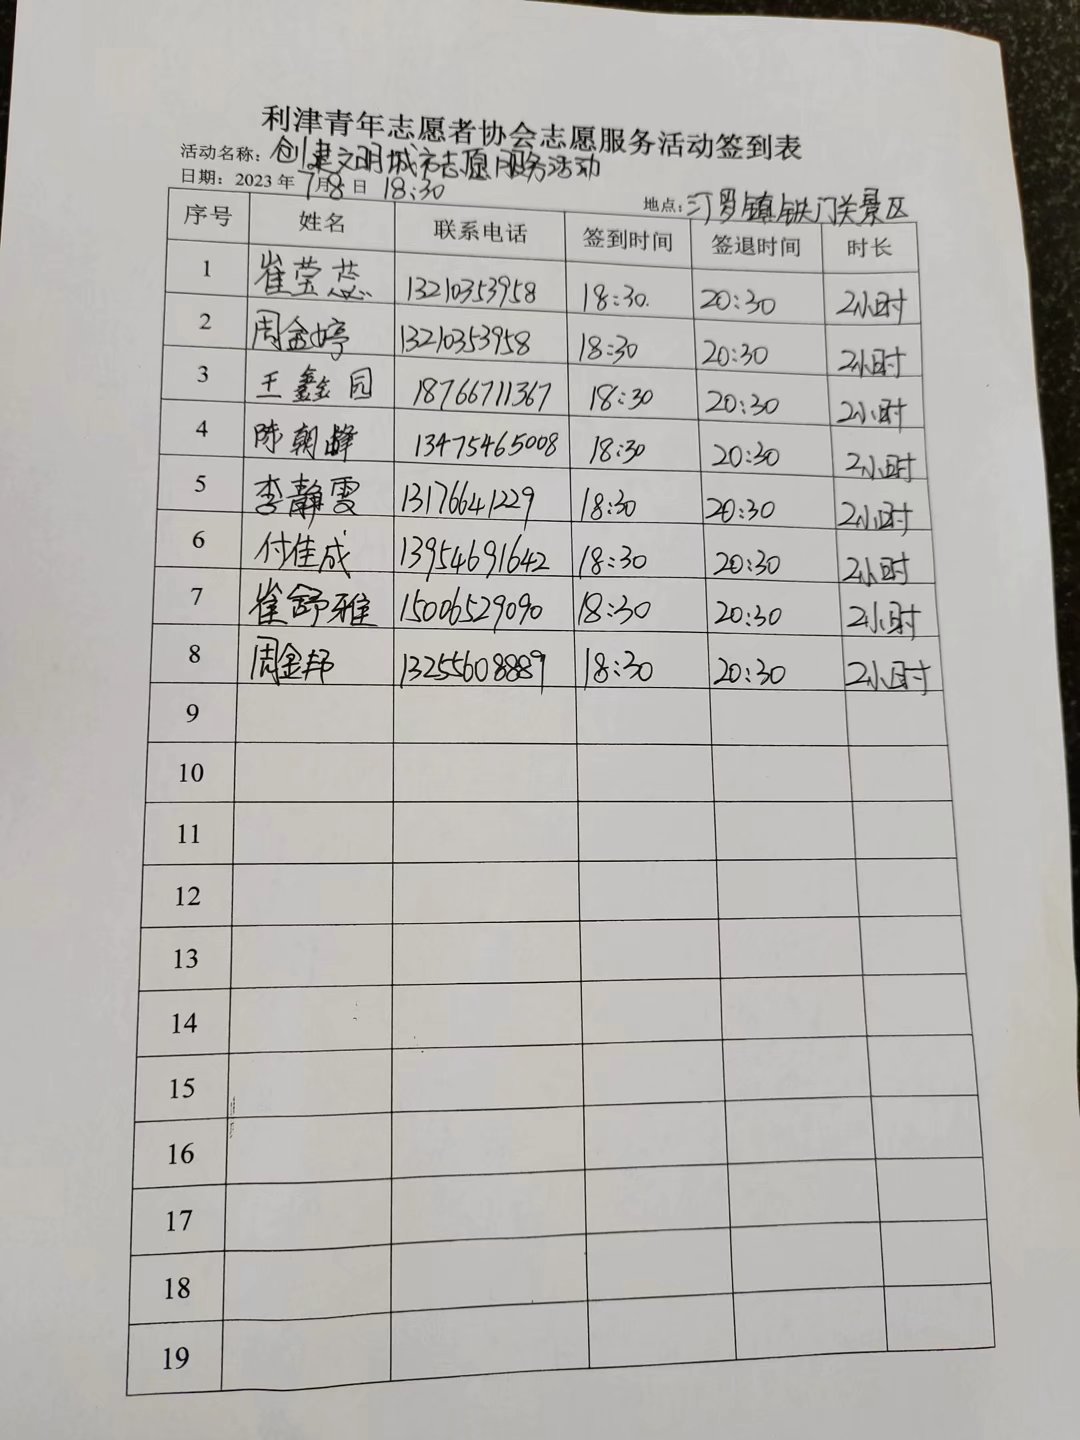 利津青年志愿者协会志愿服务活动签到表
活动名称：创建文明城市志愿服务活动
日期：2023年7月8日 18:30
地点：汀罗镇铁门关景区
序号 姓名 联系电话 签到时间 签退时间 时长
1 崔莹蕊 13210353958 18:30. 20:30 2小时
2 周金婷 13210353958 18:30 20:30 2小时
3 王鑫园 18766711367 18:30 20:30 2小时
4 陈朝峰 13475465008 18:30 20:30 2小时
5 李静雯 13176641229 18:30 20:30 2小时
6 付佳成 13954691642 18:30 20:30 2小时
7 崔舒雅 15006529090 18:30 20:30 2小时
8 周金邦 13255608889 18:30 20:30 2小时
9
10
11
12
13
14
15
16
17
18
19